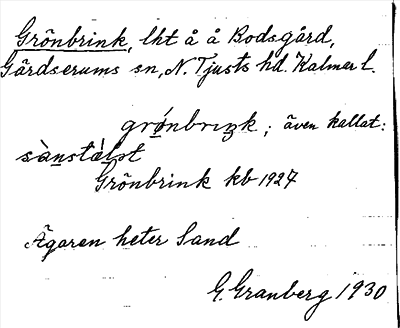 Grönbrink, lht å å Bodsgård,
Gärdserums sn, N. Tjusts hd. Kalmar l.
grǿnbrıŋk ; även kallat:
sànstàlət
Grönbrink kb 1927
Ägaren heter Sand
G. Granberg 1930